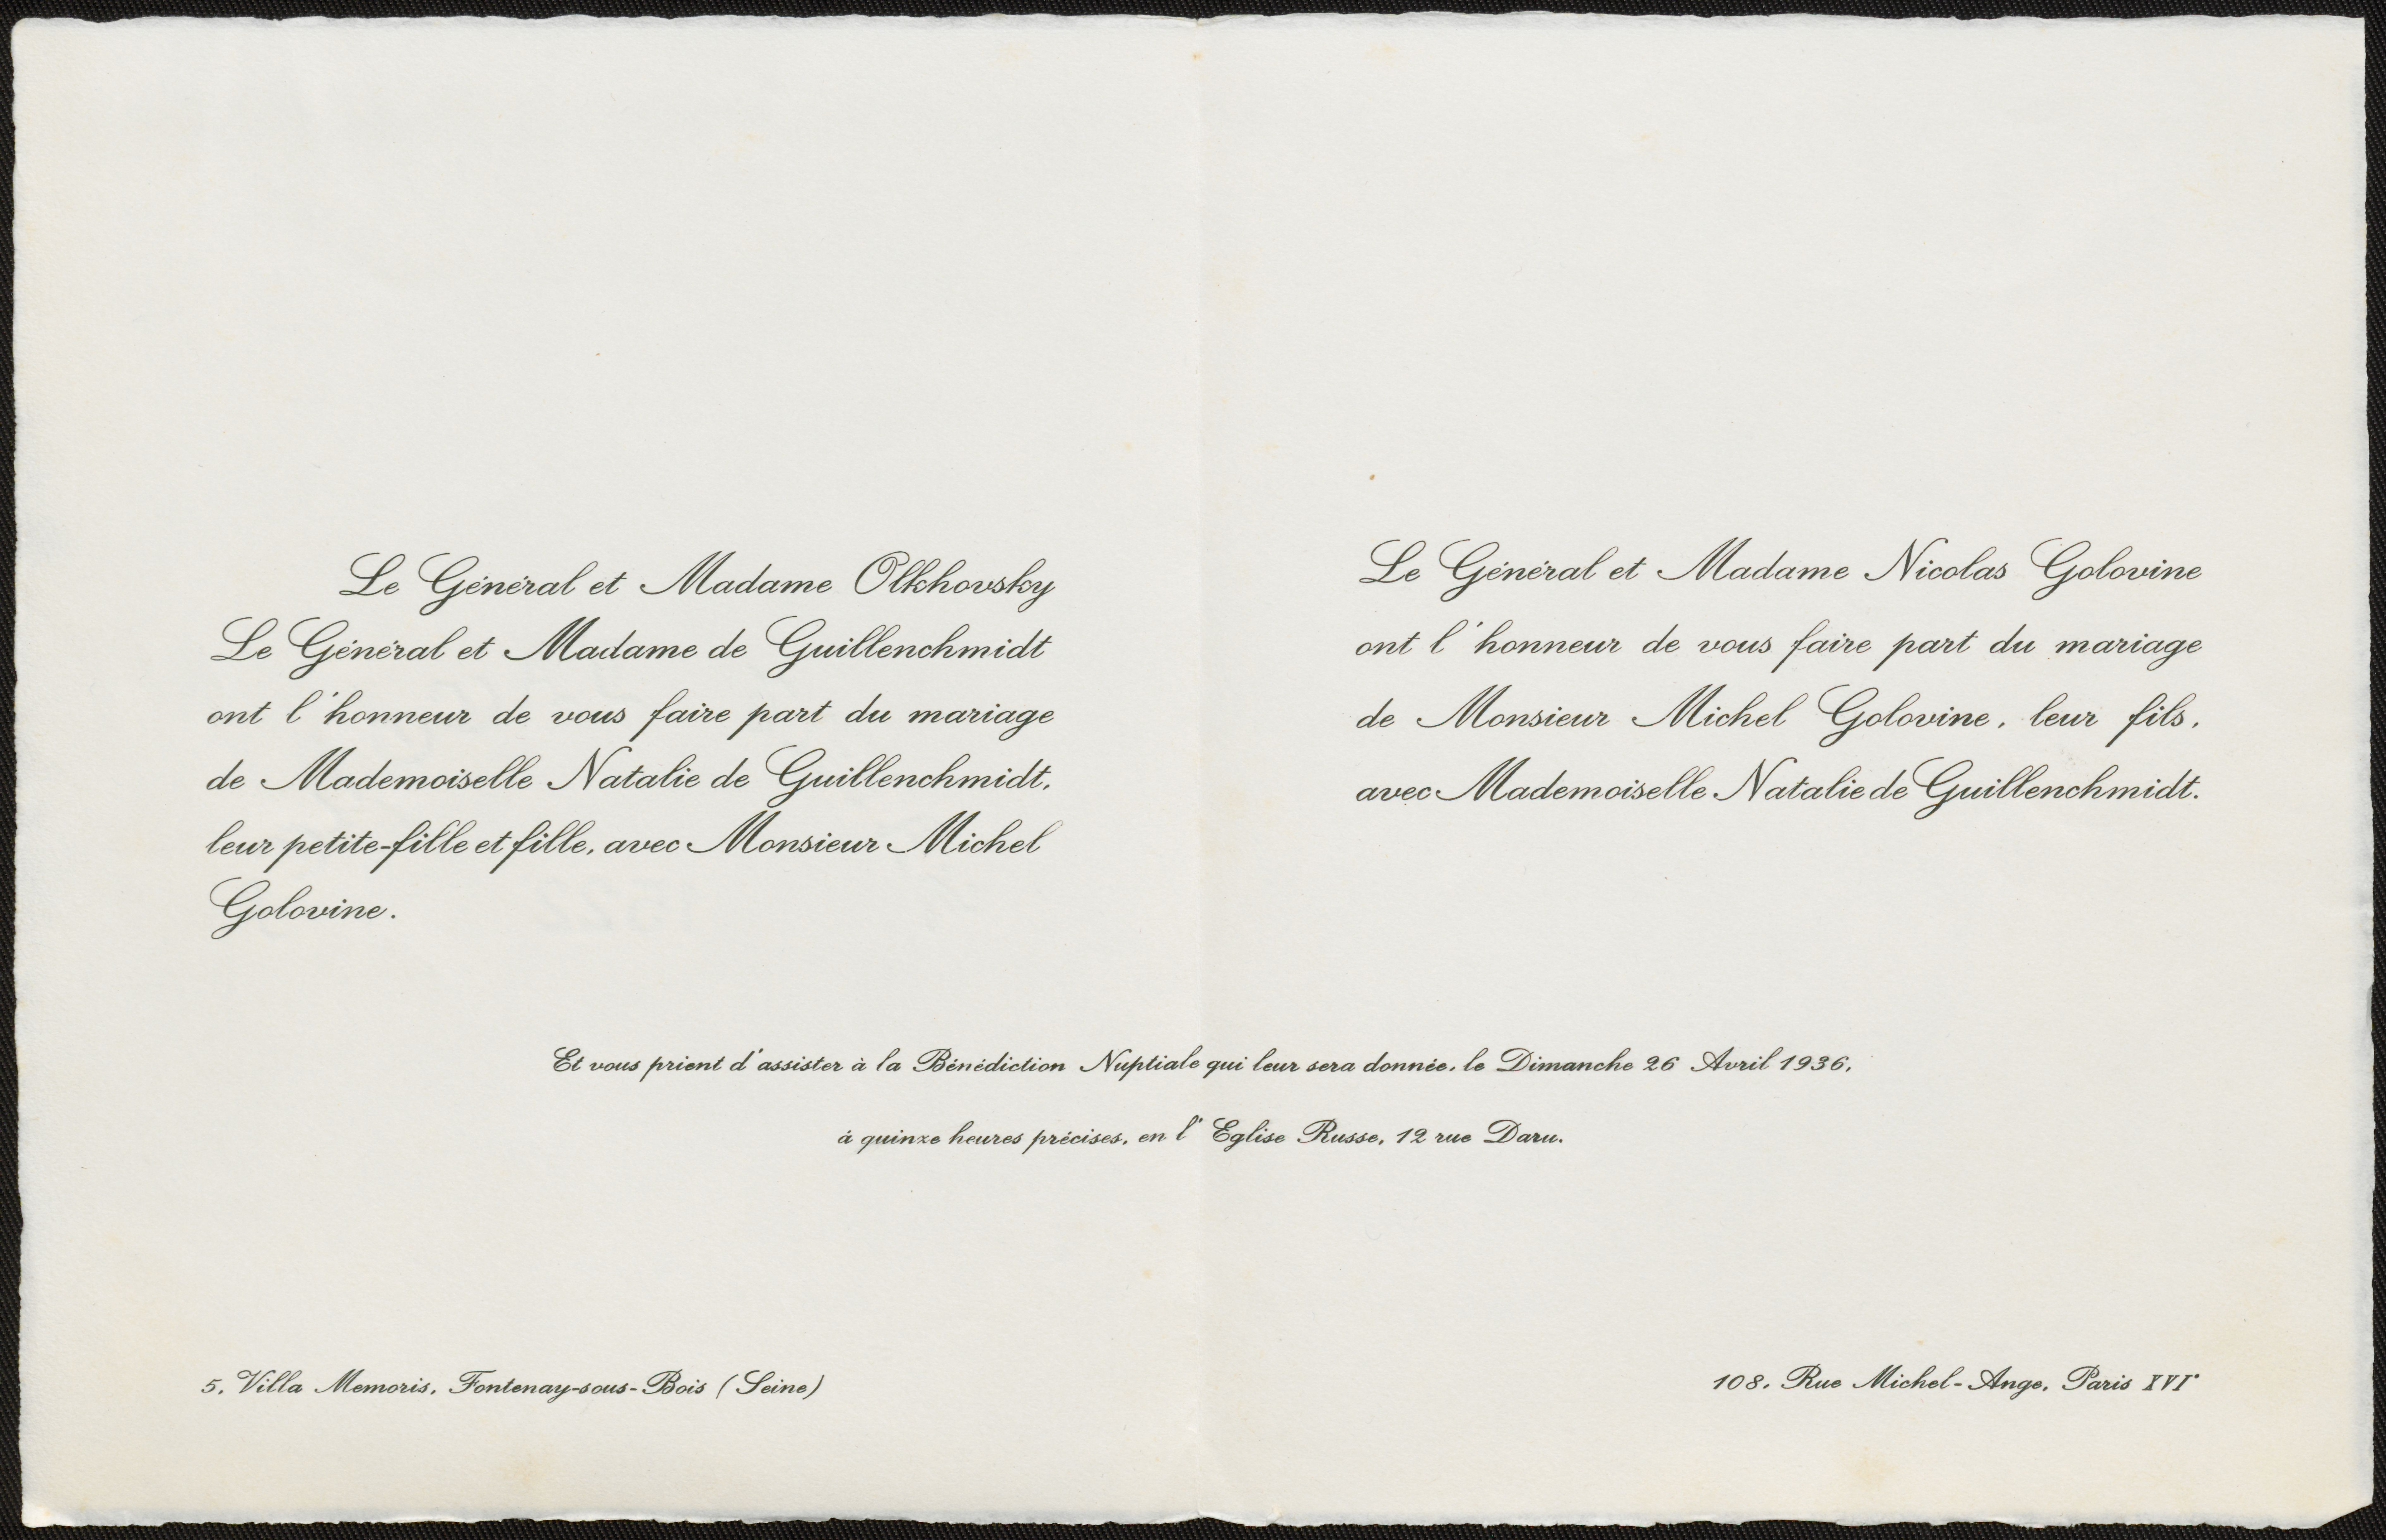 Le Général et Madame Olkhovsky
Le Général et Madame de Guillenchmidt
ont l'honneur de vous faire part du mariage
de Mademoiselle Natalie de Guillenchmidt,
leur petite-fille et fille, avec Monsieur Michel
Golovine.
Le Général et Madame Nicolas Golovine
ont l'honneur de vous faire part du mariage
de Monsieur Michel Golovine, leur fils,
avec Mademoiselle Natalie de Guillenchmidt.
Et vous prient d'assister à la Bénédiction Nuptiale qui leur sera donnée, le Dimanche 26 Avril 1936,
à quinze heures précises, en l'Eglise Russe, 12 rue Daru.
5, Villa Memoris, Fontenay-sous-Bois (Seine)
108, Rue Michel-Ange, Paris XVIᵉ